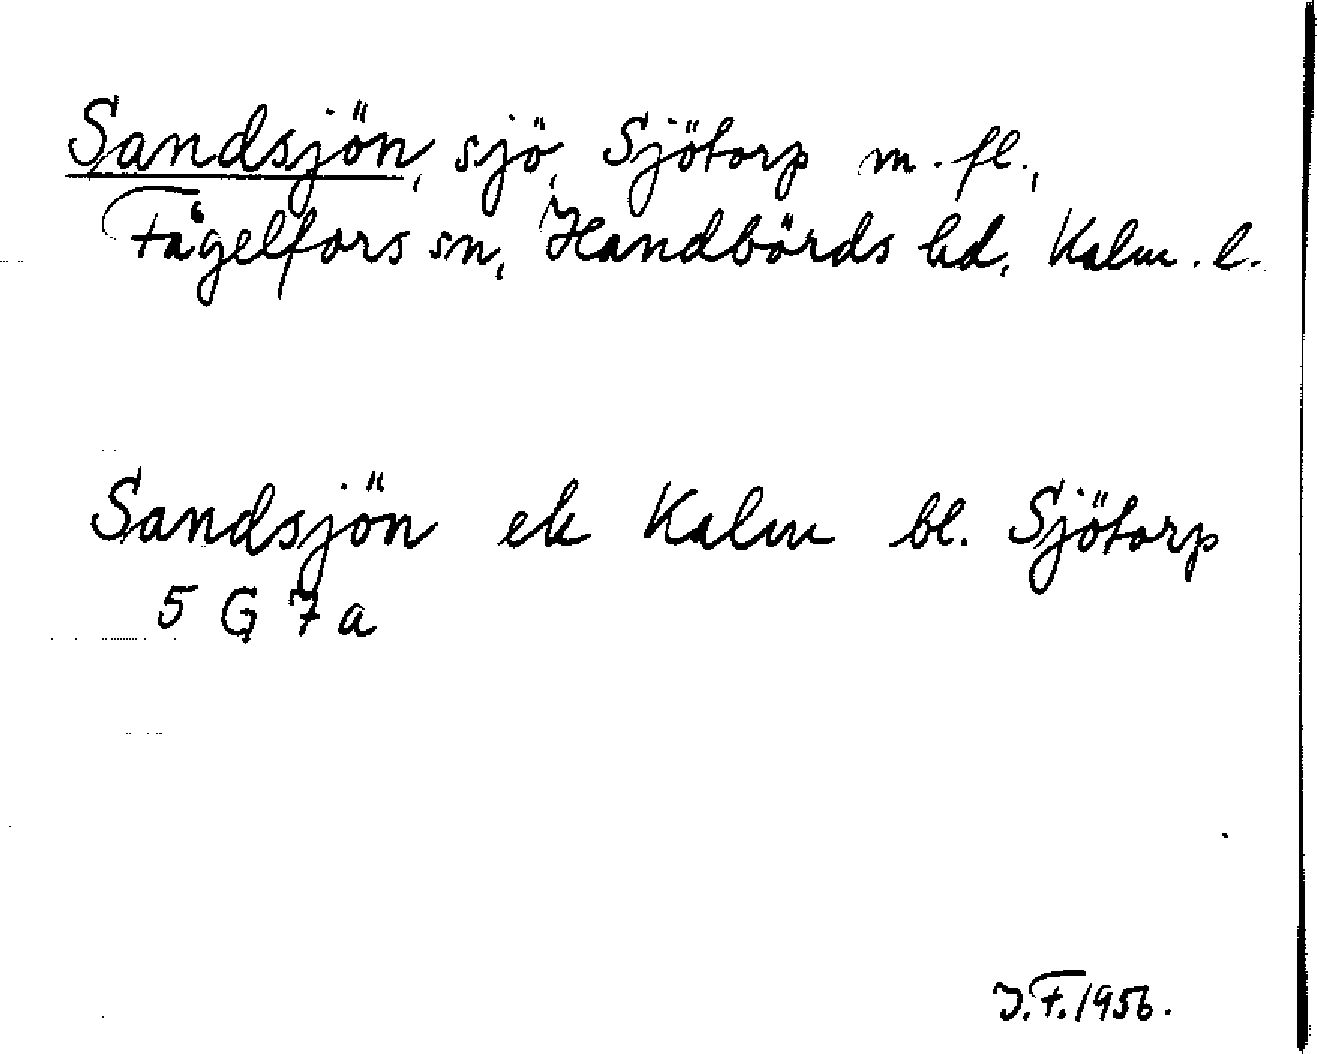 Sandsjön, sjö, Sjötorp m. fl.,
Fågelfors sn, Handbörds hd, Kalm. l.
Sandsjön ek Kalm bl. Sjötorp
5 G 7 a
J.F. 1956.